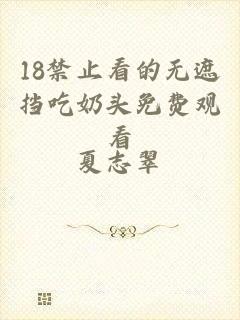 18禁止看的无遮
挡吃奶头免费观
看
夏志翠